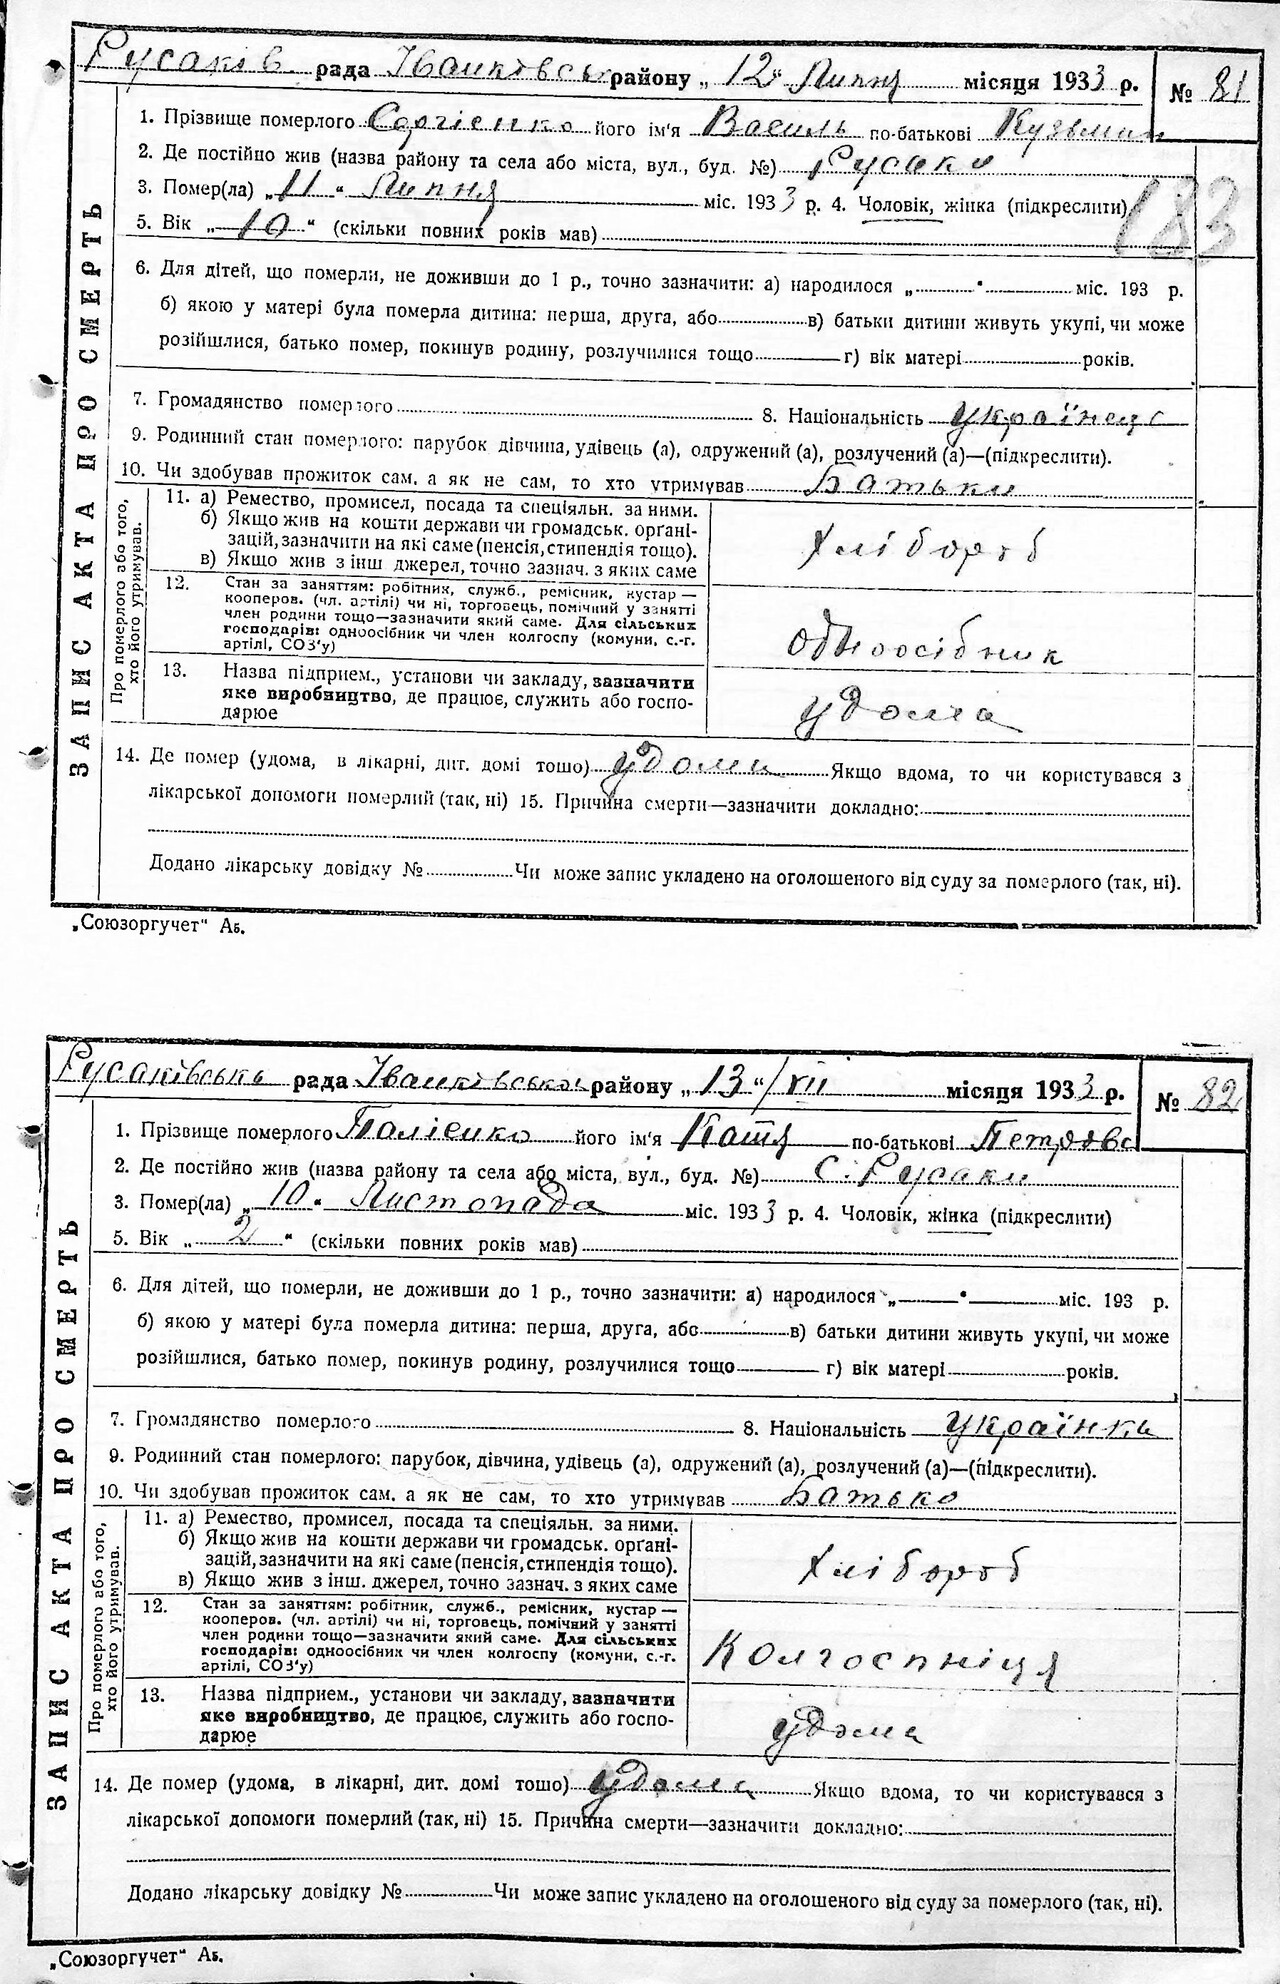 Русаків. рада Іванківськ району „12“ Липня місяця 1933 р. № 81
1. Прізвище померлого Сергієнко його ім'я Василь по-батькові Кузьмич
2. Де постійно жив (назва району та села або міста, вул., буд. №) Русаки
3. Помер(ла) „11“ Липня міс. 1933 р. 4. Чоловік, жінка (підкреслити)
183
5. Вік „10“ (скільки повних років мав)
6. Для дітей, що померли, не доживши до 1 р., точно зазначити: а) народилося „ “ міс. 193 р.
б) якою у матері була померла дитина: перша, друга, або в) батьки дитини живуть укупі, чи може
розійшлися, батько помер, покинув родину, розлучилися тощо г) вік матері років.
7. Громадянство померлого 8. Національність українець
9. Родинний стан померлого: парубок дівчина, удівець (а), одружений (а), розлучений (а)—(підкреслити).
10. Чи здобував прожиток сам, а як не сам, то хто утримував Батьки
ЗАПИС АКТА ПРО СМЕРТЬ
Про померлого або того, хто його утримував.
11. а) Ремество, промисел, посада та спеціяльн. за ними.
б) Якщо жив на кошти держави чи громадськ. органі-
зацій, зазначити на які саме (пенсія, стипендія тощо).
в) Якщо жив з інш джерел, точно зазнач. з яких саме
Хлібороб
12. Стан за заняттям: робітник, служб., ремісник, кустар—
кооперов. (чл. артілі) чи ні, торговець, помічний у занятті
член родини тощо—зазначити який саме. Для сільських
господарів: одноосібник чи член колгоспу (комуни, с.-г.
артілі, СОЗ'у)
одноосібник
13. Назва підприєм., установи чи закладу, зазначити
яке виробництво, де працює, служить або госпо-
дарює
удома
14. Де помер (удома, в лікарні, дит. домі тошо) удома Якщо вдома, то чи користувався з
лікарської допомоги померлий (так, ні) 15. Причина смерти—зазначити докладно:
Додано лікарську довідку № Чи може запис укладено на оголошеного від суду за померлого (так, ні).
„Союзоргучет“ Аб.
Русаківська рада Іванківського району „13“/VII місяця 1933 р. № 82
1. Прізвище померлого Палієнко його ім'я Катя по-батькові Петровс
2. Де постійно жив (назва району та села або міста, вул., буд. №) С. Русаки
3. Помер(ла) „10“ Листопада міс. 1933 р. 4. Чоловік, жінка (підкреслити)
5. Вік „2“ (скільки повних років мав)
6. Для дітей, що померли, не доживши до 1 р., точно зазначити: а) народилося „ “ міс. 193 р.
б) якою у матері була померла дитина: перша, друга, або в) батьки дитини живуть укупі, чи може
розійшлися, батько помер, покинув родину, розлучилися тощо г) вік матері років.
7. Громадянство померлого 8. Національність українка
9. Родинний стан померлого: парубок, дівчина, удівець (а), одружений (а), розлучений (а)—(підкреслити).
10. Чи здобував прожиток сам, а як не сам, то хто утримував Батько
ЗАПИС АКТА ПРО СМЕРТЬ
Про померлого або того, хто його утримував.
11. а) Ремество, промисел, посада та спеціяльн. за ними.
б) Якщо жив на кошти держави чи громадськ. органі-
зацій, зазначити на які саме (пенсія, стипендія тощо).
в) Якщо жив з інш. джерел, точно зазнач. з яких саме
Хлібороб
12. Стан за заняттям: робітник, служб., ремісник, кустар—
кооперов. (чл. артілі) чи ні, торговець, помічний у занятті
член родини тощо—зазначити який саме. Для сільських
господарів: одноосібник чи член колгоспу (комуни, с.-г.
артілі, СОЗ'у)
Колгоспніця
13. Назва підприєм., установи чи закладу, зазначити
яке виробництво, де працює, служить або госпо-
дарює
удома
14. Де помер (удома, в лікарні, дит. домі тошо) удома Якщо вдома, то чи користувався з
лікарської допомоги померлий (так, ні) 15. Причина смерти—зазначити докладно:
Додано лікарську довідку № Чи може запис укладено на оголошеного від суду за померлого (так, ні).
„Союзоргучет“ Аб.